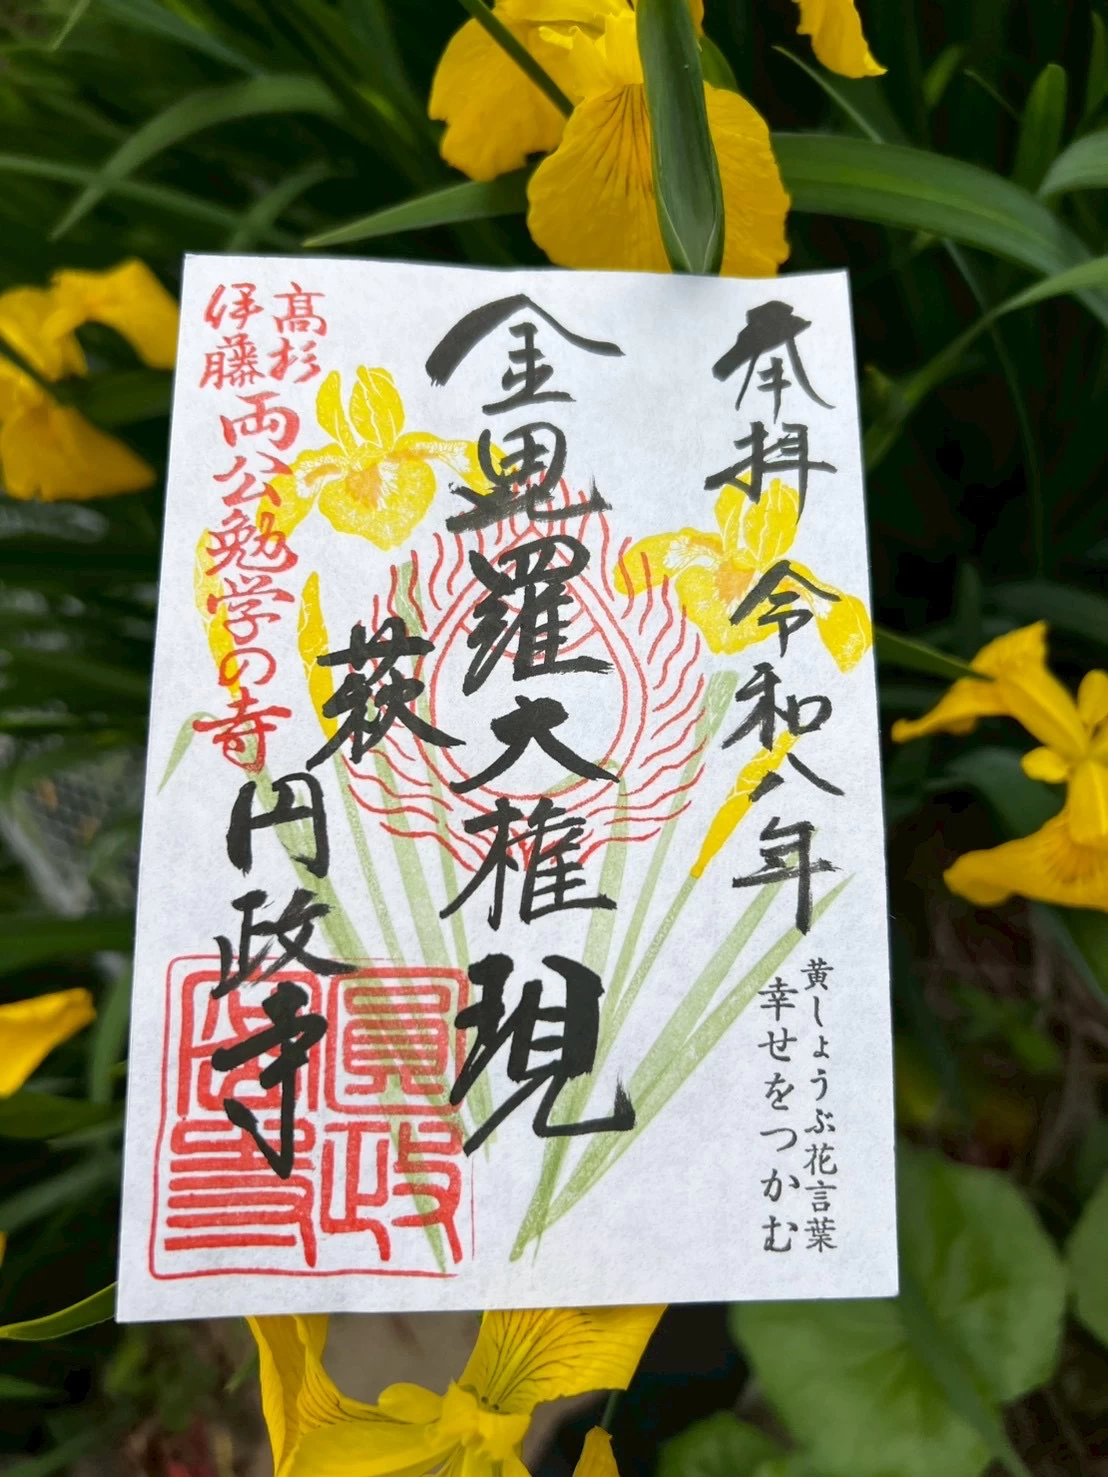 奉拝 令和八年
黄しょうぶ花言葉
幸せをつかむ
金毘羅大権現
萩 円政寺
髙杉
伊藤
両公勉学の寺
圓政
寺